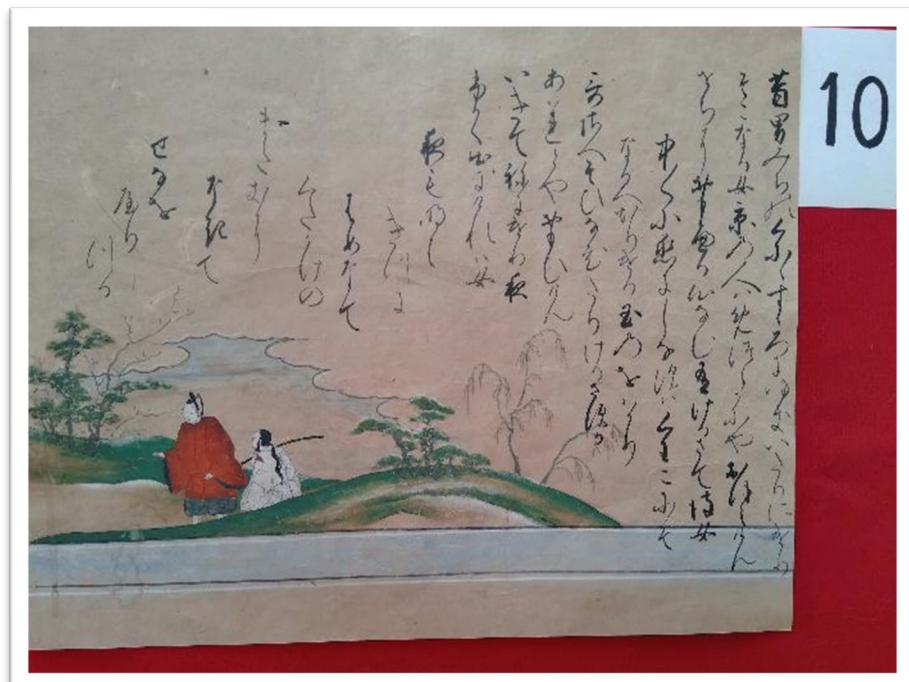 10
昔男みちの国にすゝろにゆきいたりにけり
そこなる女京の人はめつらかにやおほえけん
せちにおもへる心なむ有けるさて
中〳〵に恋にしなすはくはこにそ
なるへかりける玉のをはかり
哥さへそひなひたりけるさすか
あはれとやおもひけん
いきてねにけり夜
ふかく出にけれは女
夜も明は
きつに
はめなて
くたかけの
またきに
なきて
せなを
屋り
つる